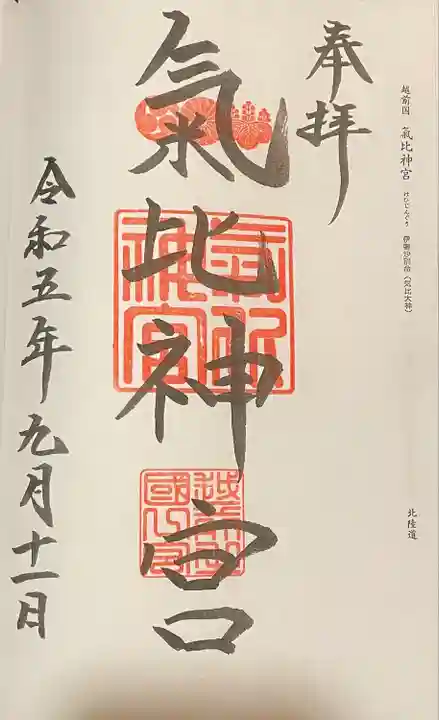 越前国 氣比神宮 けひじんぐう 伊奢沙別命(気比大神)
北陸道
奉拝
氣比神宮
氣比神宮
令和五年九月十一日